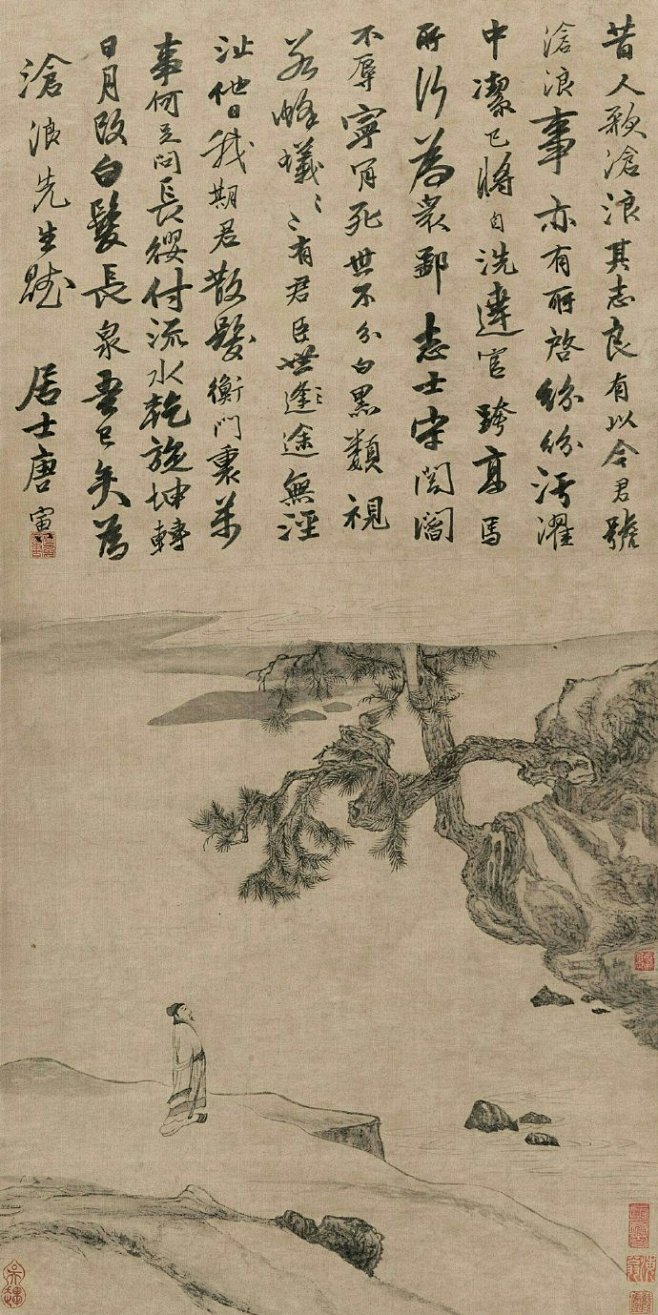 昔人歌滄浪其志良有以今君號
滄浪事亦有所啓紛紛汚濯
中潔己將自洗達官跨高馬
所行為衆鄙志士守閭閻
不辱寧肯死世不分白黑類視
若蜂蟻〻〻有君臣世逢途無涇
沚他日我期君散髮衡門裏萬
事何足問長纓付流水乾旋坤轉
日月改白髮長泉吾已矣為
滄浪先生賦 居士唐寅